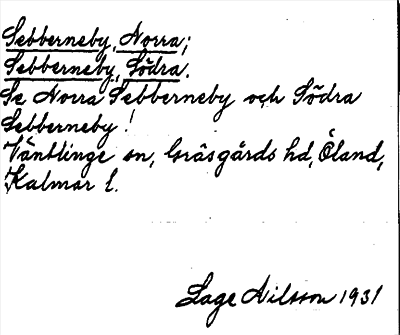 Sebberneby, Norra;
Sebberneby, Södra.
Se Norra Sebberneby och Södra
Sebberneby!
Ventlinge sn, Gräsgårds hd, Öland,
Kalmar l.
Lage Nilsson 1931